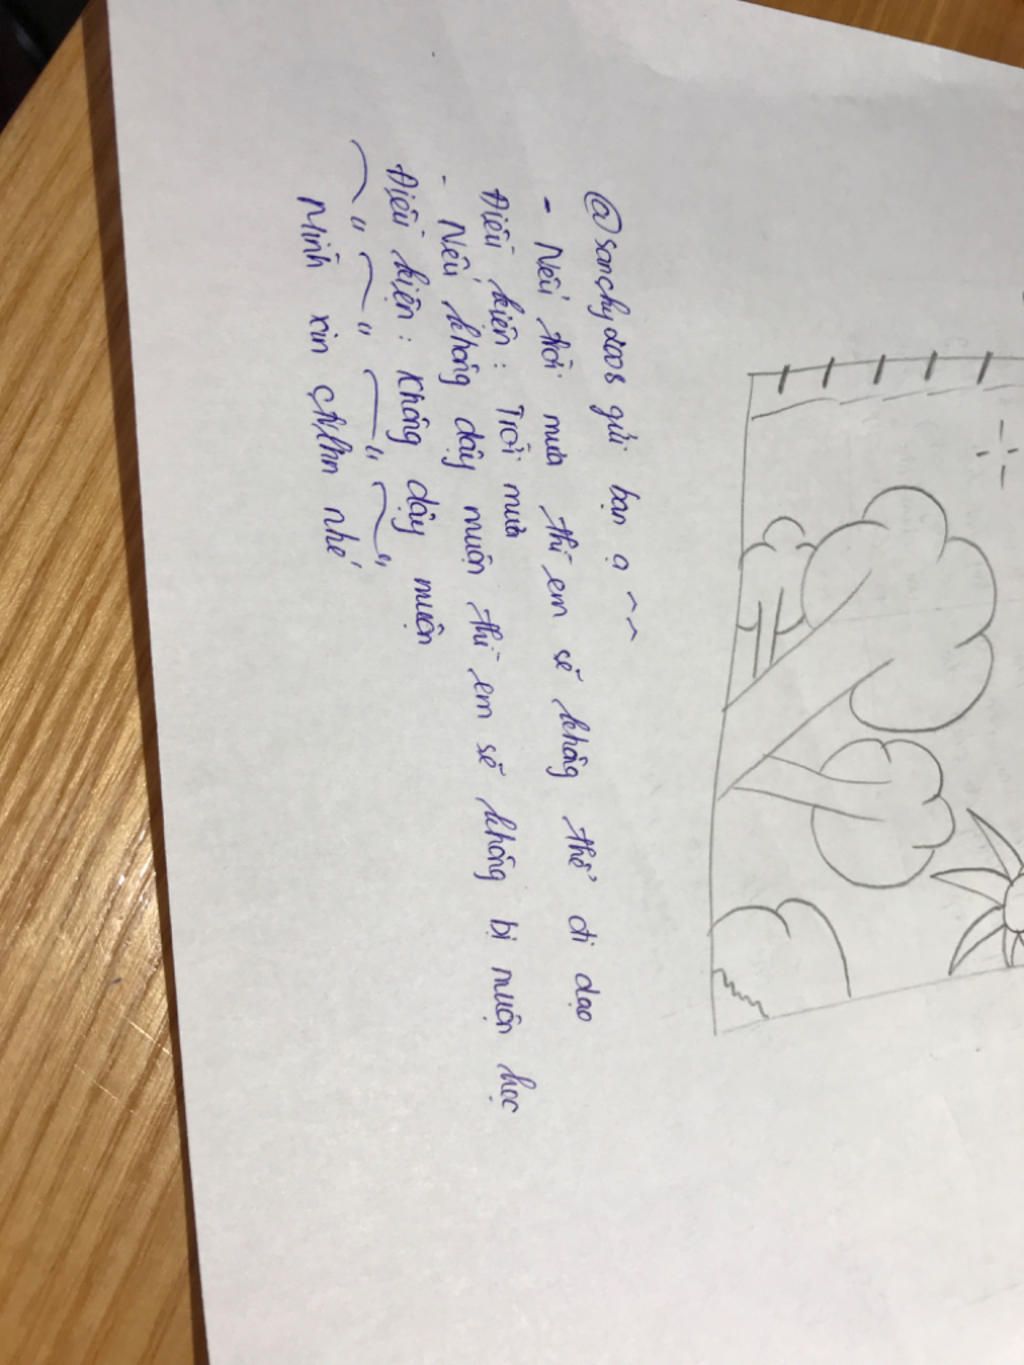 @sonchy2008 gửi bạn ạ ^^
- Nếu trời mưa thì em sẽ không thể đi dạo
Điều kiện : Trời mưa
- Nếu không dậy muộn thì em sẽ không bị muộn học
Điều kiện : Không dậy muộn
Mình xin ctlhn nhé